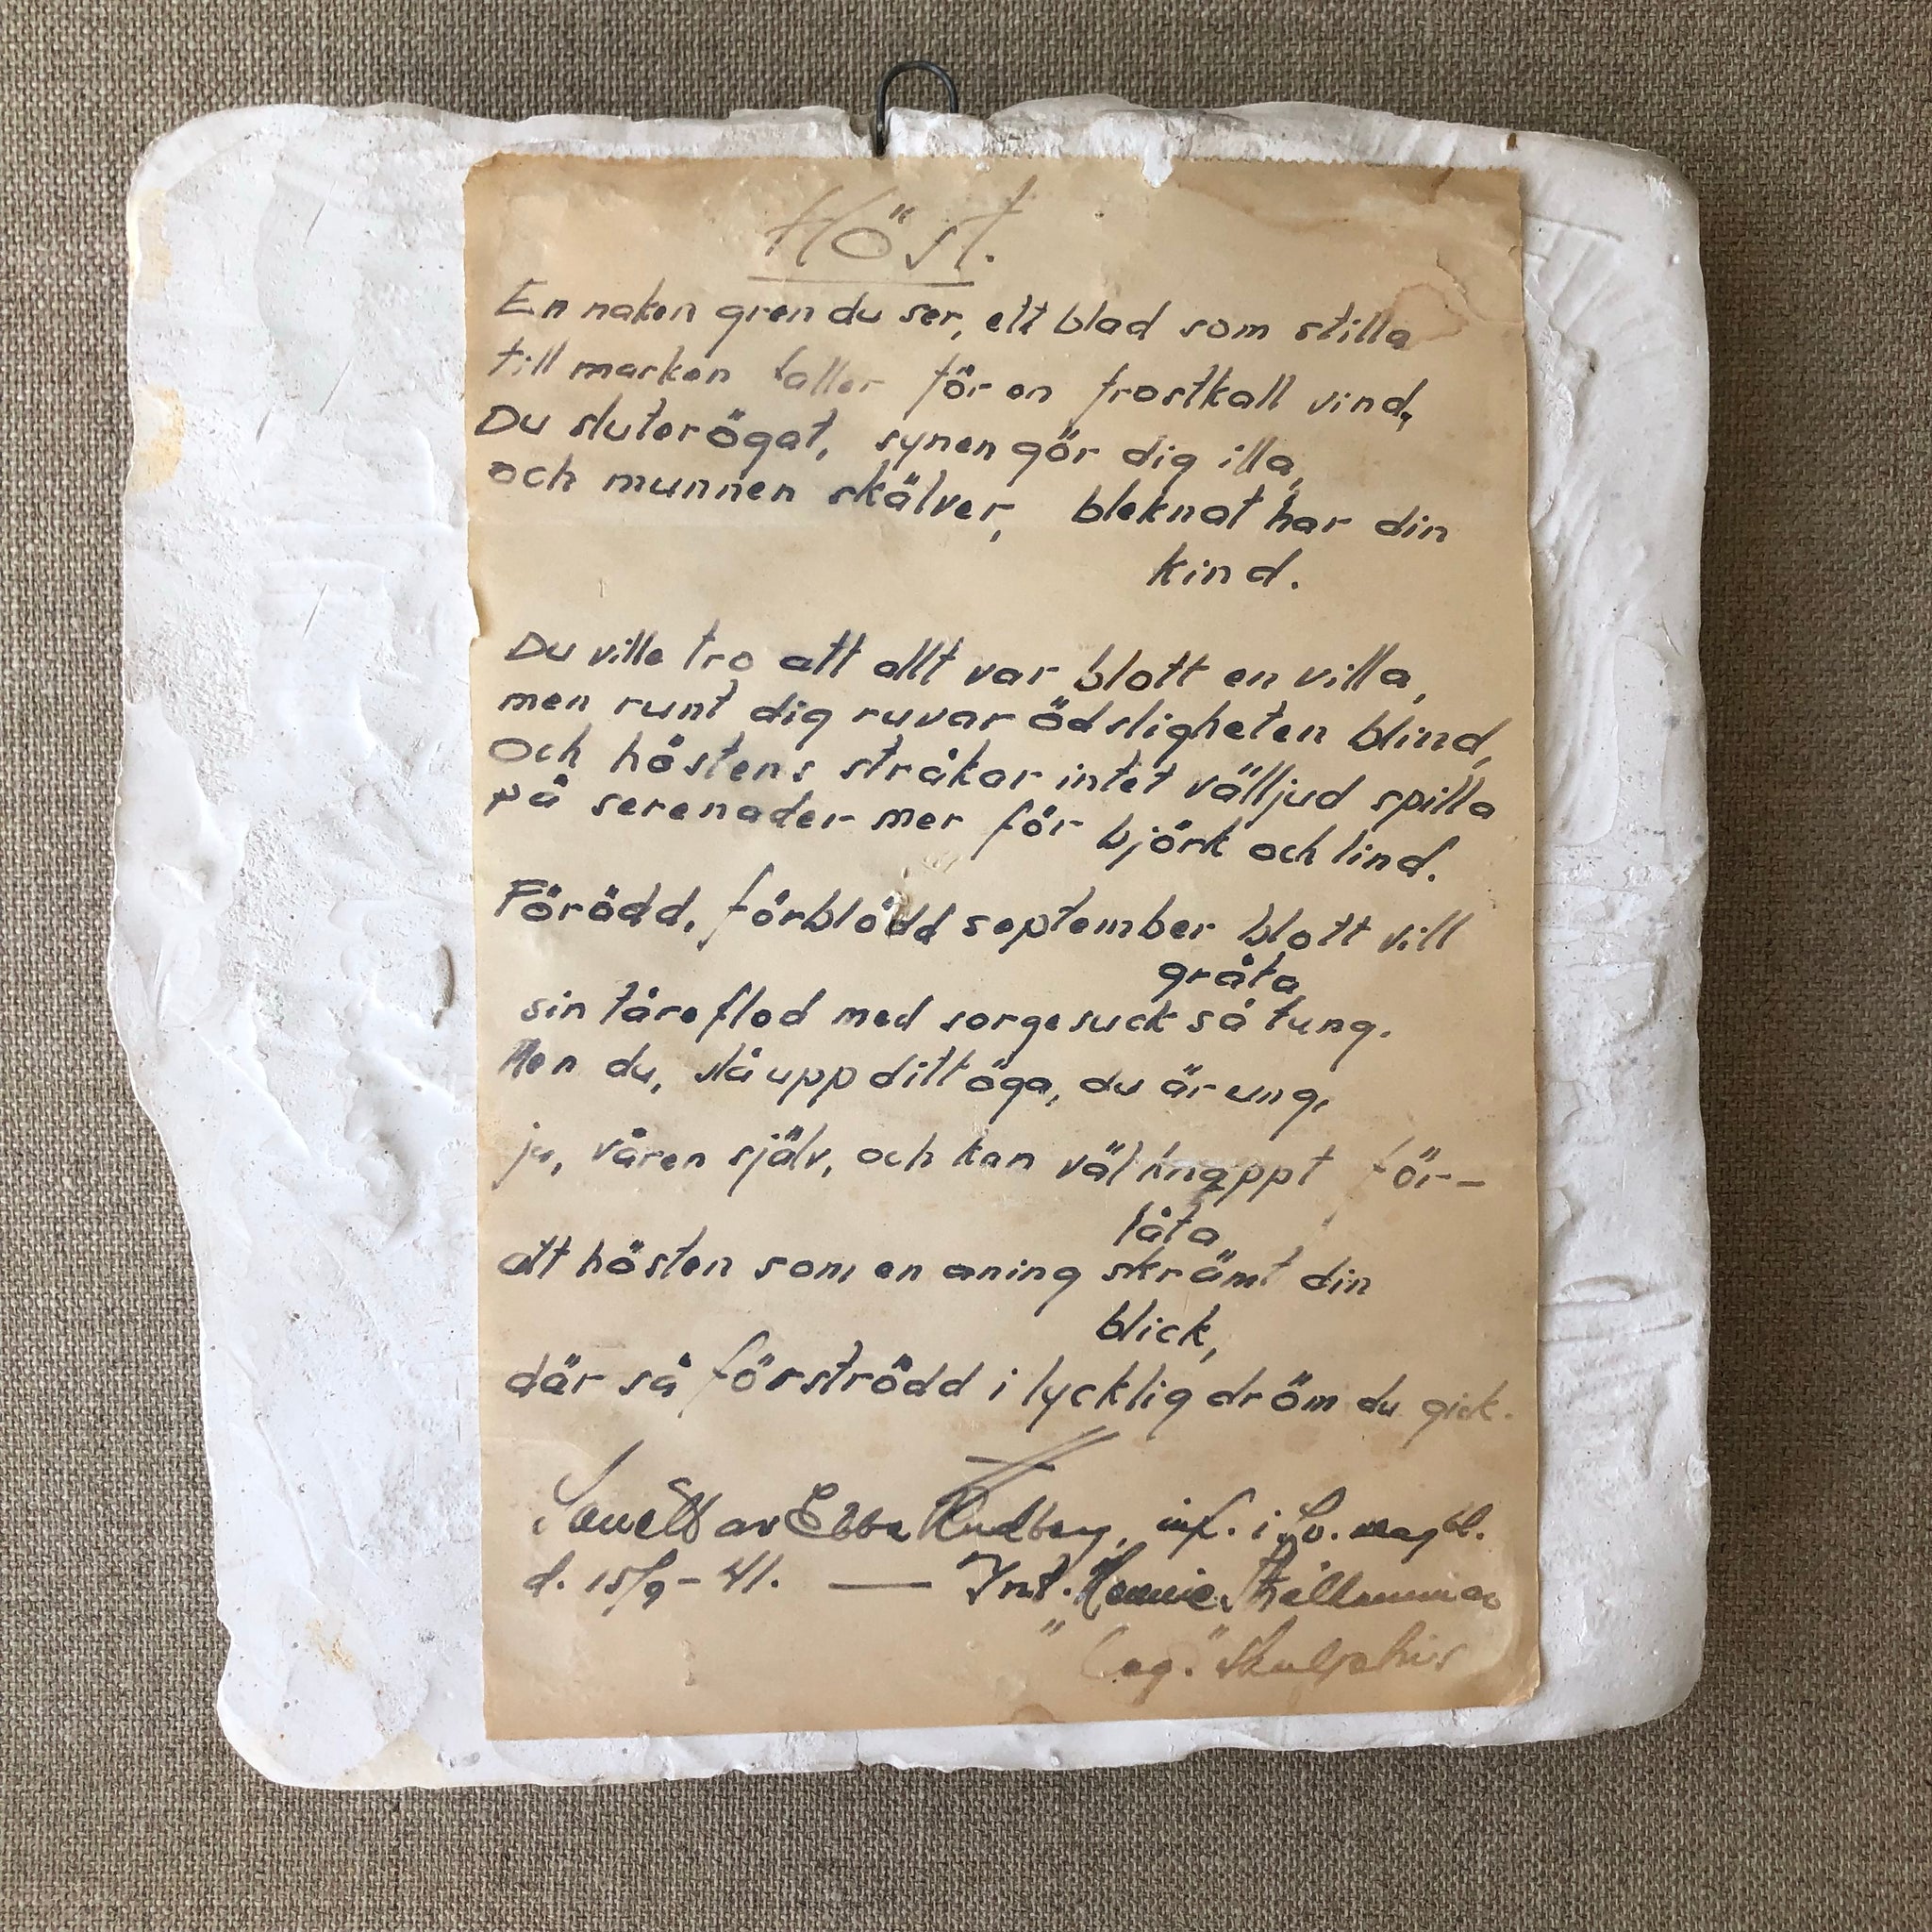 Höst.
En naken gren du ser, ett blad som stilla
till marken faller för en frostkall vind,
Du sluter ögat, synen gör dig illa,
och munnen skälver, bleknat har din
kind.
Du ville tro att allt var blott en villa,
men runt dig ruvar ödsligheten blind,
Och höstens stråkar intet välljud spilla
på serenader mer för björk och lind.
Förödd, förblödd september blott vill
gråta
sin tåreflod med sorgesuck så tung.
Men du, slå upp ditt öga, du är ung,
ju, våren själv, och kan väl knappt för-
låta
att hösten som en aning skrämt din
blick,
där så förströdd i lycklig dröm du gick.
Sonett av Ebbe Lindberg, inf. i
d. 15/9 - 41. —